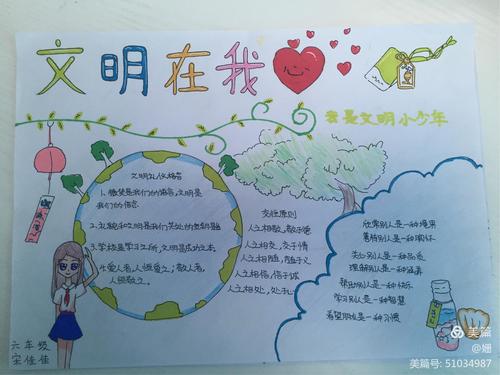 文明在我
我是文明小少年
文明礼仪格言
1.微笑是我们的语言,文明是
我们的信念
2.礼貌和文明是我们共处的金钥匙
3.学校是学习之所,文明是成功之本
4.爱人者,人恒爱之;敬人者,
人恒敬之。
交往原则
人之相敬,敬于德
人之相交,交于情
人之相随,随于义
人之相信,信于诚
人之相处,处于心
欣赏别人是一种境界
善待别人是一种胸怀
关心别人是一种品质
理解别人是一种涵养
帮助别人是一种快乐
学习别人是一种智慧
是一种习惯
六年级
宋佳佳
美篇
@姗
美篇号: 51034987